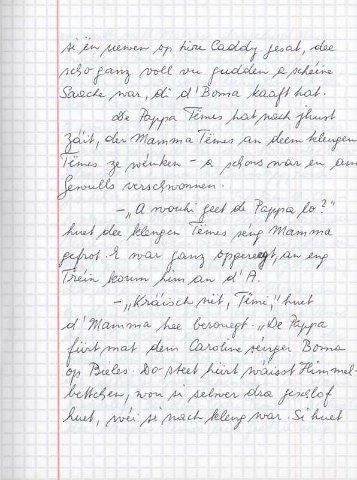 si ën uewen op hire Caddy gesat, dee
scho ganz voll vu gudden a schéine
Saache war, di d'Boma kaaft hat.
De Pappa Tëmes hat nach jhust
Zäit, der Mamma Tëmes an deem klengen
Tëmes ze wénken – a schons war en am
Gewulls verschwonnen.
–„A wouhi geet de Pappa lo?"
huet dee klengen Tëmes seng Mamma
gefrot. E war ganz opgereegt, an eng
Tréin koum him an d'A.
–„Kräisch nit, Tëmi," huet
d'Mamma hee berouegt. „De Pappa
fiirt mat dem Caroline sénger Boma
op Bieles. Do steet hiirt wäisst Himmel-
bettchen, wou si selwer dra geschlof
huet, wéi si nach kleng war. Si huet